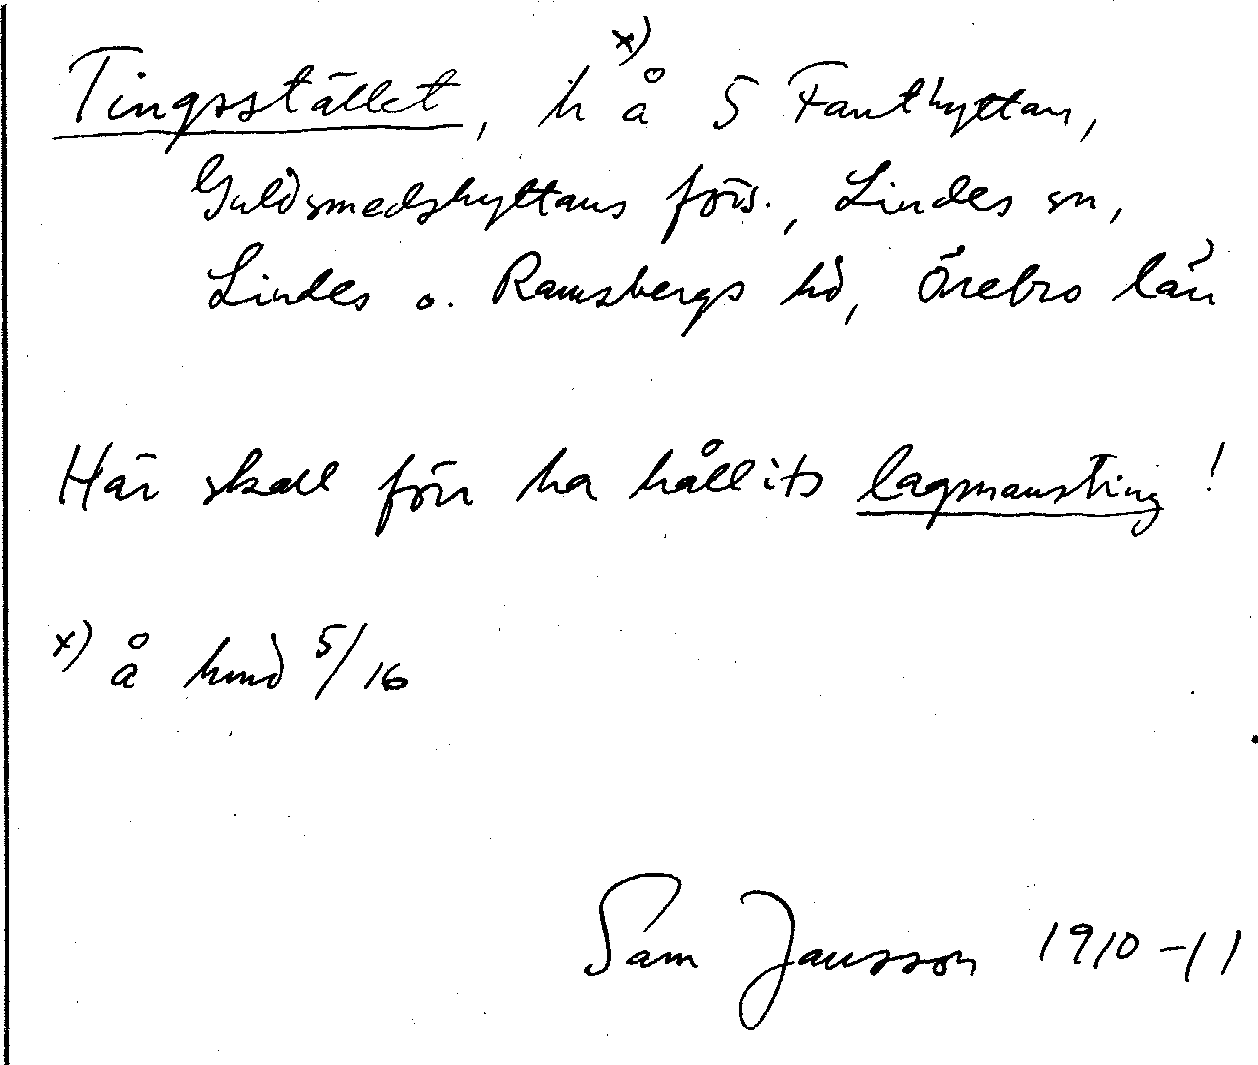 Tingsstället, h å x) S Fanthyttan,
Guldsmedshyttans förs., Lindes sn,
Lindes o. Ramsbergs hd, Örebro län
Här skall förr ha hållits lagmansting!
x) å hmd 5/16
Sam Jansson 1910-11